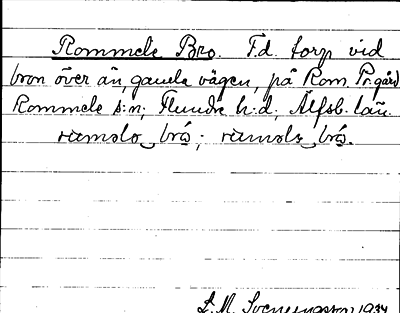 Rommele Bro. F.d. torp vid
bron över ån, gamla vägen, på Rom. Pr.gård
Rommele s:n; Flundre h:d, Älfsb. län.
ræmələ bró; ræmələ bró.
L. M. Svenungsson 1934